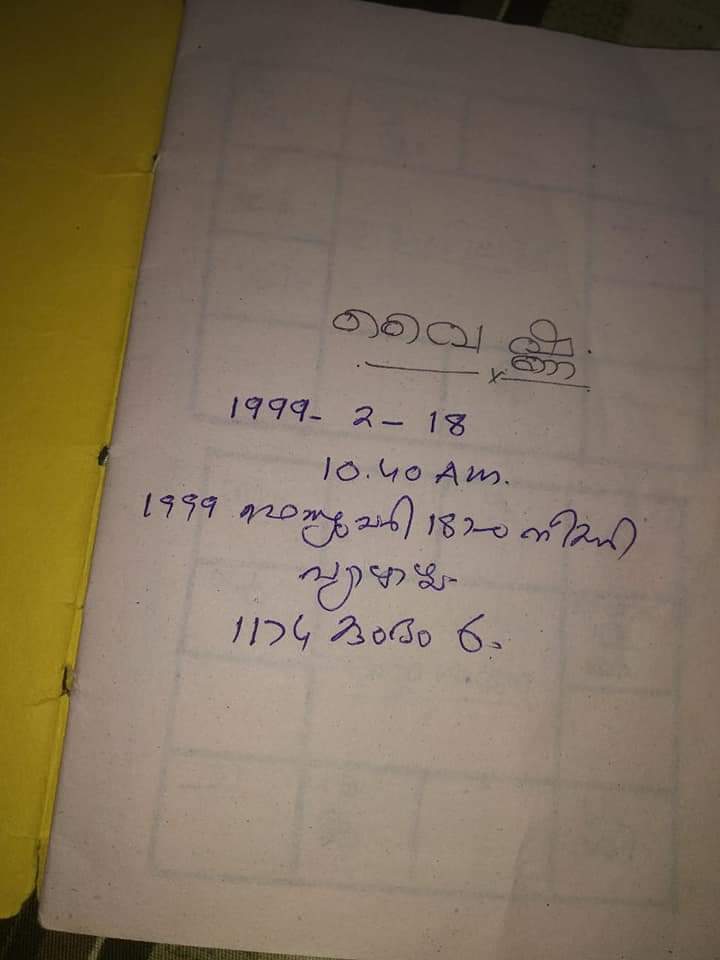 വൈഷ്ണ.
1999- 2- 18
10.40 Am.
1999 ഫെബ്രുവരി 18ാം തിയതി
വ്യാഴാഴ്ച
1174 കുംഭം 6.